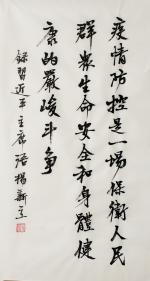 疫情防控是一場保衛人民
群衆生命安全和身體健
康的嚴峻斗争
録習近平主席語楊新立